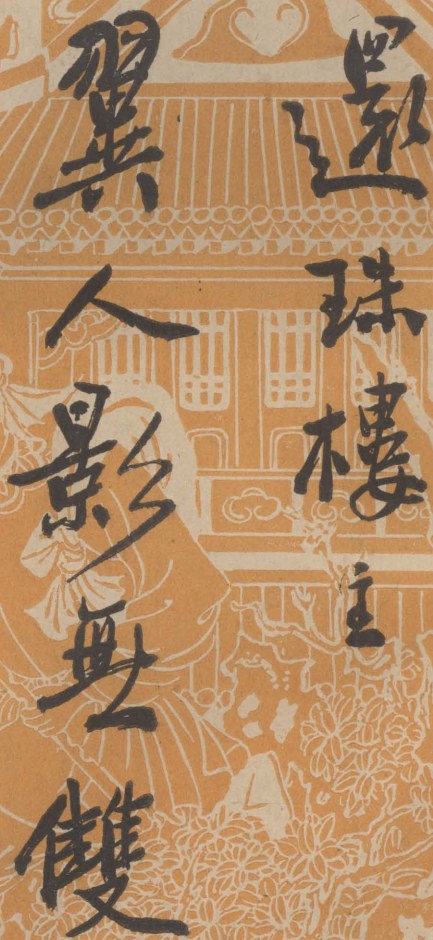 還珠樓主
翼人影無雙